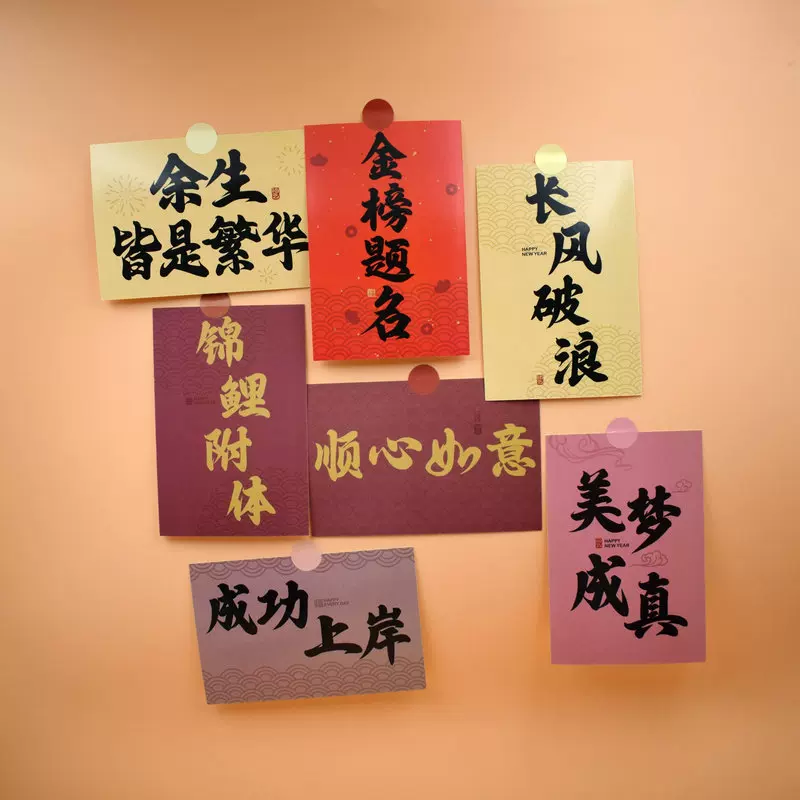 余生
皆是繁华
金榜题名
长风破浪
HAPPY
NEW YEAR
锦鲤附体
顺心如意
美梦
成真
HAPPY
NEW YEAR
成功
上岸
HAPPY
EVERY DAY